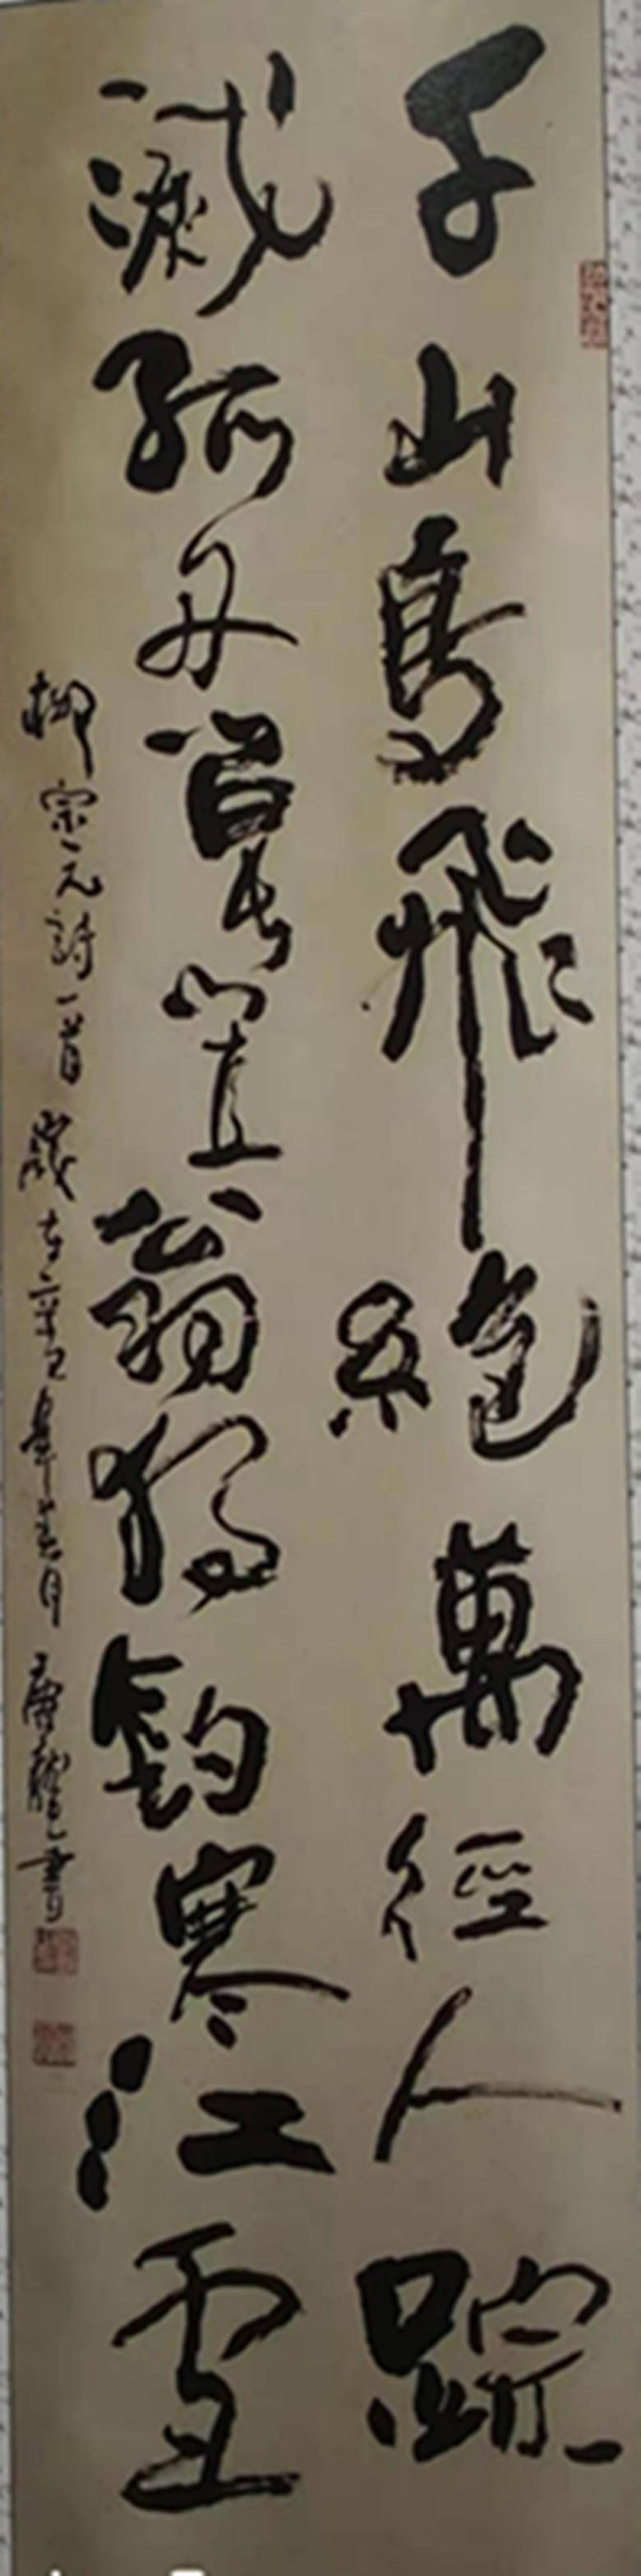 千山鳥飛絶萬徑人踪
滅孤舟蓑笠翁獨釣寒江雪
柳宗元詩一首 歲在辛丑年春月 書